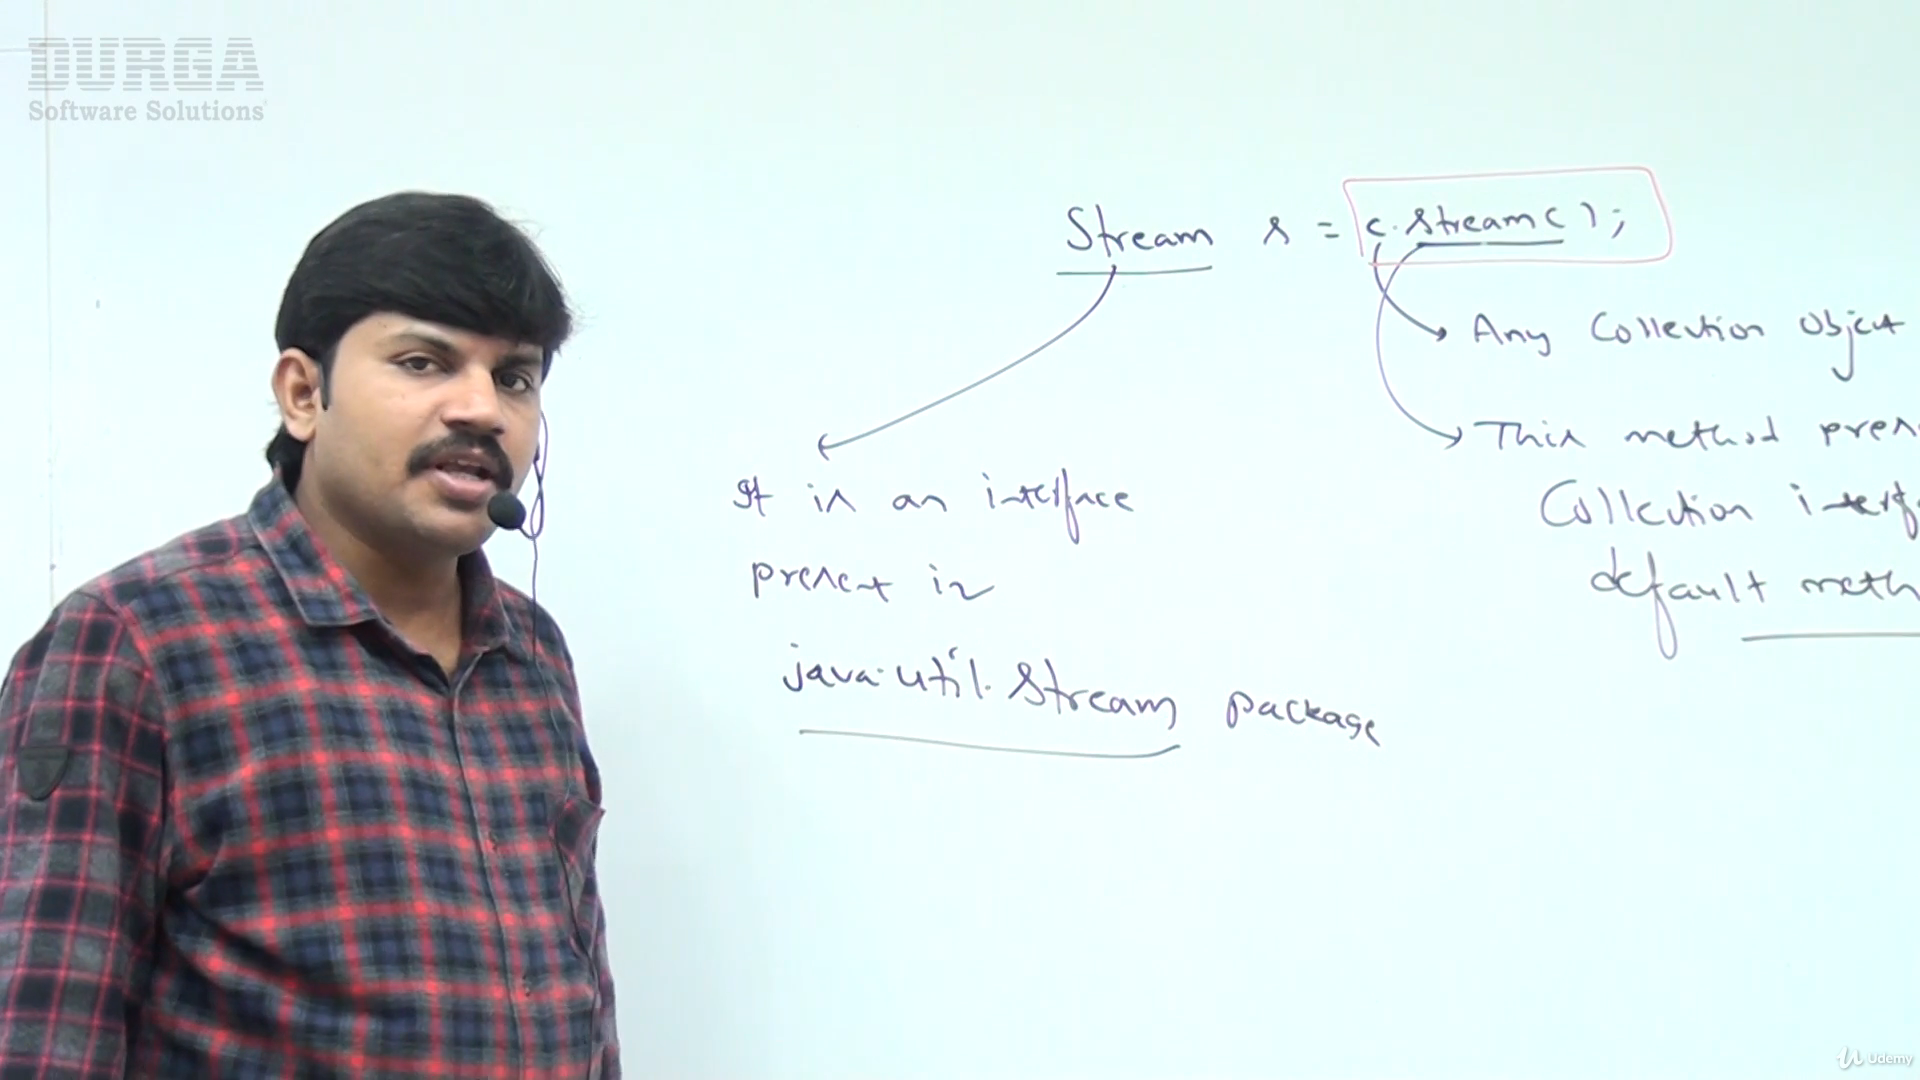 DURGA
Software Solutions
Stream s = c.stream();
Any Collection object
This method
Collection
default
It is an interface
present in
java.util.stream package
Udemy